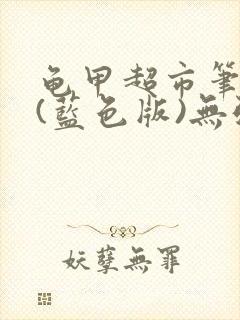 龟甲超市筆
(藍色版)無
妖孽無罪